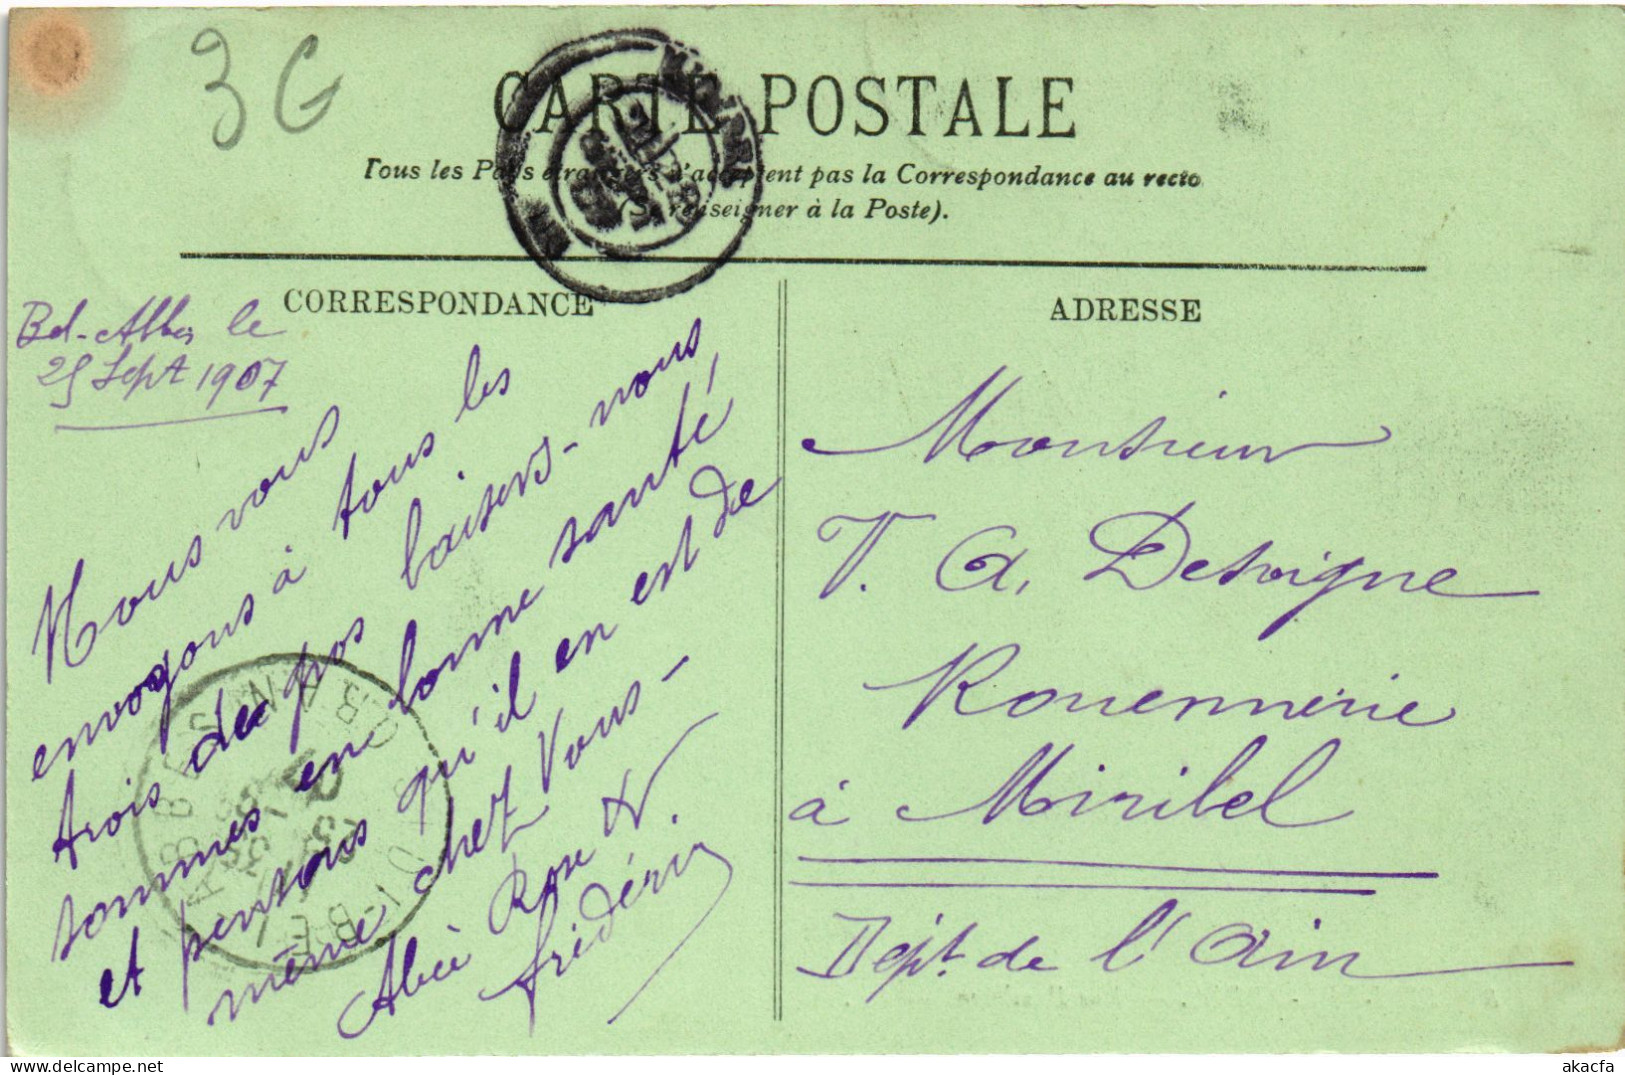 3 G
CARTE POSTALE
Tous les Pays étrangers n'acceptent pas la Correspondance au recto
(Se renseigner à la Poste).
CORRESPONDANCE
Bel-Abbès le
25 Sept 1907
Nous vous
envoyons à tous les
trois des gros baisers - nous
sommes en bonne santé,
et pensons qu'il en est de
même chez Vous -
Alice Rose &
frédéric
ADRESSE
Monsieur
V. A. Desvigne
Rouennerie
à Miribel
Dépt. de l'Ain
akacfa